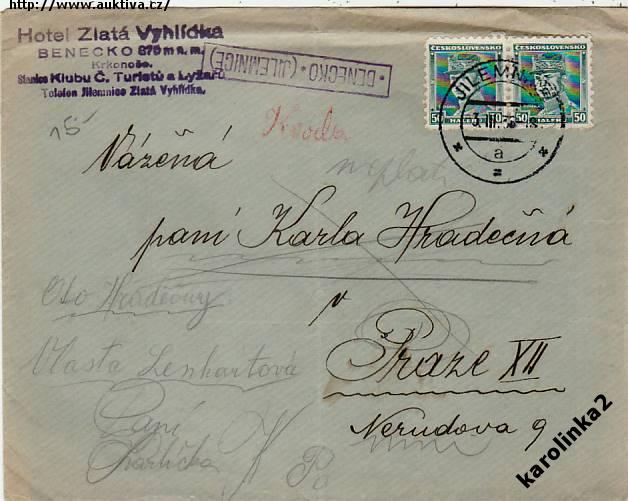 http://www.auktiva.cz/)
Hotel Zlatá Vyhlídka
BENECKO 875 m n. m.
Krkonoše.
Stanice Klubu Č. Turistů a Lyžařů
Telefon Jilemnice Zlatá Vyhlídka.
· BENECKO · (JILEMNICE)
ČESKOSLOVENSKO ČESKOSLOVENSKO
50 HALÉŘŮ 50 50 HALÉŘŮ 50
JILEMNICE
3. III. 36
a
15
Vážená
neplatí
paní Karla Hradečná
Oto Hradečný
v
Vlasta Lenhartová
Praze XII
Paní
Nerudova 9
Karlička
Po
karolinka2